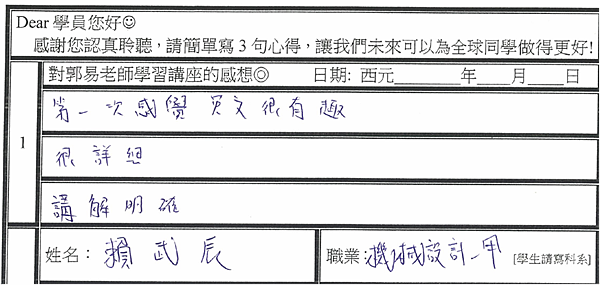 Dear 學員您好☺
感謝您認真聆聽，請簡單寫 3 句心得，讓我們未來可以為全球同學做得更好!
對郭易老師學習講座的感想◎ 日期: 西元______年____月____日
1
第一次感覺 英文很有趣
很詳細
講解明確
姓名： 賴武辰 職業： 機械設計一甲 [學生請寫科系]